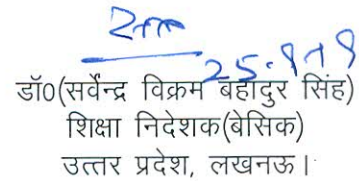 डॉ0(सर्वेन्द्र विक्रम बहादुर सिंह)
शिक्षा निदेशक(बेसिक)
उत्तर प्रदेश, लखनऊ।